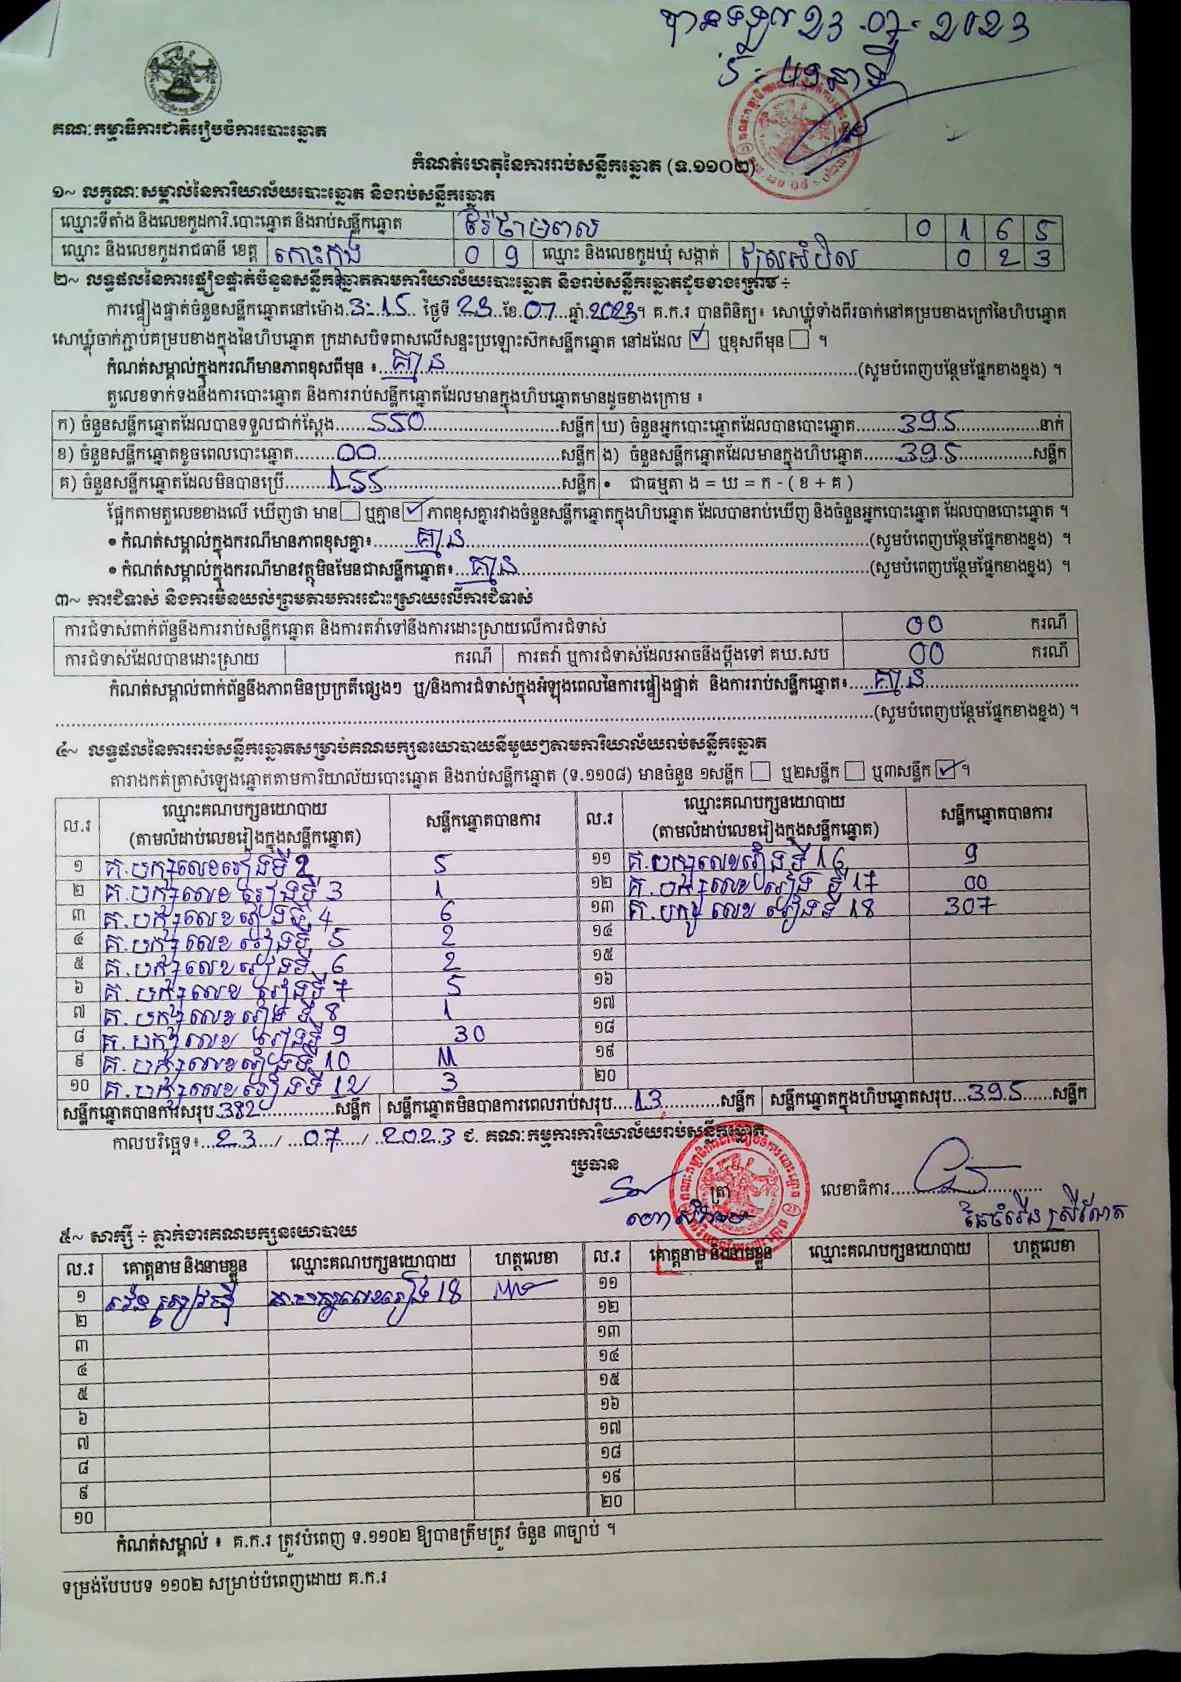 បានទទួល 23-07-2023
គណៈកម្មាធិការជាតិរៀបចំការបោះឆ្នោត
កំណត់ហេតុនៃការរាប់សន្លឹកឆ្នោត (ទ.១១០២)
១~ លក្ខណៈសម្គាល់នៃការិយាល័យបោះឆ្នោត និងរាប់សន្លឹកឆ្នោត
ឈ្មោះទីតាំង និងលេខកូដការិ.បោះឆ្នោត និងរាប់សន្លឹកឆ្នោត 0 1 6 5
ឈ្មោះ និងលេខកូដរាជធានី ខេត្ត កោះកុង 0 9 ឈ្មោះ និងលេខកូដឃុំ សង្កាត់ 0 2 3
២~ លទ្ធផលនៃការផ្ទៀងផ្ទាត់ចំនួនសន្លឹកឆ្នោតតាមការិយាល័យបោះឆ្នោត និងរាប់សន្លឹកឆ្នោតដូចខាងក្រោម ÷
ការផ្ទៀងផ្ទាត់ចំនួនសន្លឹកឆ្នោតនៅម៉ោង 3:15 ថ្ងៃទី 23 ខែ 07 ឆ្នាំ 2023។ គ.ក.រ បានពិនិត្យ៖ សោឃ្លុំទាំងពីរចាក់នៅគម្របខាងក្រៅនៃហិបឆ្នោត
សោឃ្លុំចាក់ភ្ជាប់គម្របខាងក្នុងនៃហិបឆ្នោត ក្រដាសបិទពាសលើសន្ទះប្រឡោះស៊កសន្លឹកឆ្នោត នៅដដែល ☑ ឬខុសពីមុន ☐ ។
កំណត់សម្គាល់ក្នុងករណីមានភាពខុសពីមុន ៖ គ្មាន (សូមបំពេញបន្ថែមផ្នែកខាងខ្នង) ។
តួលេខទាក់ទងនឹងការបោះឆ្នោត និងការរាប់សន្លឹកឆ្នោតដែលមានក្នុងហិបឆ្នោតមានដូចខាងក្រោម ៖
ក) ចំនួនសន្លឹកឆ្នោតដែលបានទទួលជាក់ស្តែង 550 សន្លឹក ឃ) ចំនួនអ្នកបោះឆ្នោតដែលបានបោះឆ្នោត 395 នាក់
ខ) ចំនួនសន្លឹកឆ្នោតខូចពេលបោះឆ្នោត 00 សន្លឹក ង) ចំនួនសន្លឹកឆ្នោតដែលមានក្នុងហិបឆ្នោត 395 សន្លឹក
គ) ចំនួនសន្លឹកឆ្នោតដែលមិនបានប្រើ 155 សន្លឹក • ជាធម្មតា ង = ឃ = ក - ( ខ + គ )
ផ្អែកតាមតួលេខខាងលើ ឃើញថា មាន ☐ ឬគ្មាន ☑ ភាពខុសគ្នារវាងចំនួនសន្លឹកឆ្នោតក្នុងហិបឆ្នោត ដែលបានរាប់ឃើញ និងចំនួនអ្នកបោះឆ្នោត ដែលបានបោះឆ្នោត ។
• កំណត់សម្គាល់ក្នុងករណីមានភាពខុសគ្នា៖ គ្មាន (សូមបំពេញបន្ថែមផ្នែកខាងខ្នង) ។
• កំណត់សម្គាល់ក្នុងករណីមានវត្ថុមិនមែនជាសន្លឹកឆ្នោត៖ គ្មាន (សូមបំពេញបន្ថែមផ្នែកខាងខ្នង) ។
៣~ ការជំទាស់ និងការមិនយល់ព្រមតាមការដោះស្រាយលើការជំទាស់
ការជំទាស់ពាក់ព័ន្ធនឹងការរាប់សន្លឹកឆ្នោត និងការតវ៉ាទៅនឹងការដោះស្រាយលើការជំទាស់ 00 ករណី
ការជំទាស់ដែលបានដោះស្រាយ ករណី ការតវ៉ា ឬការជំទាស់ដែលអាចនឹងប្តឹងទៅ គឃ.សប 00 ករណី
កំណត់សម្គាល់ពាក់ព័ន្ធនឹងភាពមិនប្រក្រតីផ្សេងៗ ឬ/និងការជំទាស់ក្នុងអំឡុងពេលនៃការផ្ទៀងផ្ទាត់ និងការរាប់សន្លឹកឆ្នោត៖ គ្មាន
(សូមបំពេញបន្ថែមផ្នែកខាងខ្នង) ។
៤~ លទ្ធផលនៃការរាប់សន្លឹកឆ្នោតសម្រាប់គណបក្សនយោបាយនីមួយៗតាមការិយាល័យរាប់សន្លឹកឆ្នោត
តារាងកត់ត្រាសំឡេងឆ្នោតតាមការិយាល័យបោះឆ្នោត និងរាប់សន្លឹកឆ្នោត (ទ.១១០៨) មានចំនួន ១សន្លឹក ☐ ឬ២សន្លឹក ☐ ឬ៣សន្លឹក ☑ ។
ល.រ ឈ្មោះគណបក្សនយោបាយ (តាមលំដាប់លេខរៀងក្នុងសន្លឹកឆ្នោត) សន្លឹកឆ្នោតបានការ ល.រ ឈ្មោះគណបក្សនយោបាយ (តាមលំដាប់លេខរៀងក្នុងសន្លឹកឆ្នោត) សន្លឹកឆ្នោតបានការ
១ គ.បក្សលេខរៀងទី 2 5 ១១ គ.បក្សលេខរៀងទី 16 9
២ គ.បក្សលេខរៀងទី 3 1 ១២ គ.បក្សលេខរៀងទី 17 00
៣ គ.បក្សលេខរៀងទី 4 6 ១៣ គ.បក្សលេខរៀងទី 18 307
៤ គ.បក្សលេខរៀងទី 5 2 ១៤
៥ គ.បក្សលេខរៀងទី 6 2 ១៥
៦ គ.បក្សលេខរៀងទី 7 5 ១៦
៧ គ.បក្សលេខរៀងទី 8 1 ១៧
៨ គ.បក្សលេខរៀងទី 9 30 ១៨
៩ គ.បក្សលេខរៀងទី 10 11 ១៩
១០ គ.បក្សលេខរៀងទី 12 3 ២០
សន្លឹកឆ្នោតបានការសរុប 382 សន្លឹក សន្លឹកឆ្នោតមិនបានការពេលរាប់សរុប 13 សន្លឹក សន្លឹកឆ្នោតក្នុងហិបឆ្នោតសរុប 395 សន្លឹក
កាលបរិច្ឆេទ៖ 23 / 07 / 2023 ជ. គណៈកម្មការការិយាល័យរាប់សន្លឹកឆ្នោត
ប្រធាន
ត្រា លេខាធិការ
៥~ សាក្សី ÷ ភ្នាក់ងារគណបក្សនយោបាយ
ល.រ គោត្តនាម និងនាមខ្លួន ឈ្មោះគណបក្សនយោបាយ ហត្ថលេខា ល.រ គោត្តនាម និងនាមខ្លួន ឈ្មោះគណបក្សនយោបាយ ហត្ថលេខា
១ គ.បក្សលេខរៀង 18 ១១
២ ១២
៣ ១៣
៤ ១៤
៥ ១៥
៦ ១៦
៧ ១៧
៨ ១៨
៩ ១៩
១០ ២០
កំណត់សម្គាល់ ៖ គ.ក.រ ត្រូវបំពេញ ទ.១១០២ ឱ្យបានត្រឹមត្រូវ ចំនួន ៣ច្បាប់ ។
ទម្រង់បែបបទ ១១០២ សម្រាប់បំពេញដោយ គ.ក.រ